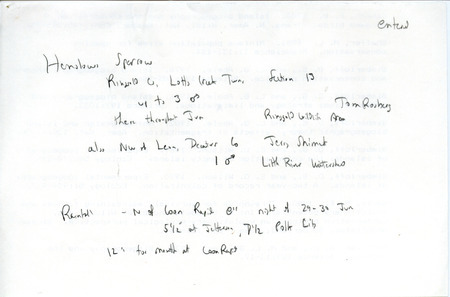 entered
Henslows Sparrow
Ringgold Co, Lotts Creek Twn, Section 13
up to 3 ♂
Tom Rosburg
there throughout Jun Ringgold Wildlife Area
also NW of Leon, Decatur Co Jerry
1 ♂ Little River Watershed
Rainfall - N of Coon Rapids 8" night of 29-30 Jun
5 1/2" at Jefferson, 7 1/2 Polk City
12" for month at Coon Rapids